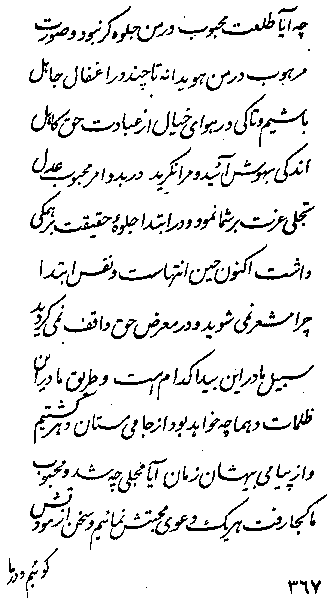 چه آیا طلعت محبوب در من جلوه گر نبود و صورت
مرهوب در من هویدا نه تا چند در اغفال جاهل
باشیم و تا کی در هوای خیال از عبادت حق کاهل
اندکی بهوش آئید و مرا نگرید در بدو امر محبوب عدل
تجلی عزت بر شما نمود و در ابتدا جلوهٔ حقیقت بر همگی
داشت اکنون حین انتهاست و نفس ابتدا
چرا مشعر نمی شوید و در معرض حق واقف نمی گردید
سبیل ما در این بیدا کدام است و طریق ما در این
ظلمات دهما چه خواهد بود از جامی ستان و هر گشتیم
و از پیامی بیهشان زمان آیا مجلی چه شد و محبوب
ما کجا رفت هر یک دعوی محبتش نمائیم و سخن از مودتش
گوئیم و در ما
۳۶۷